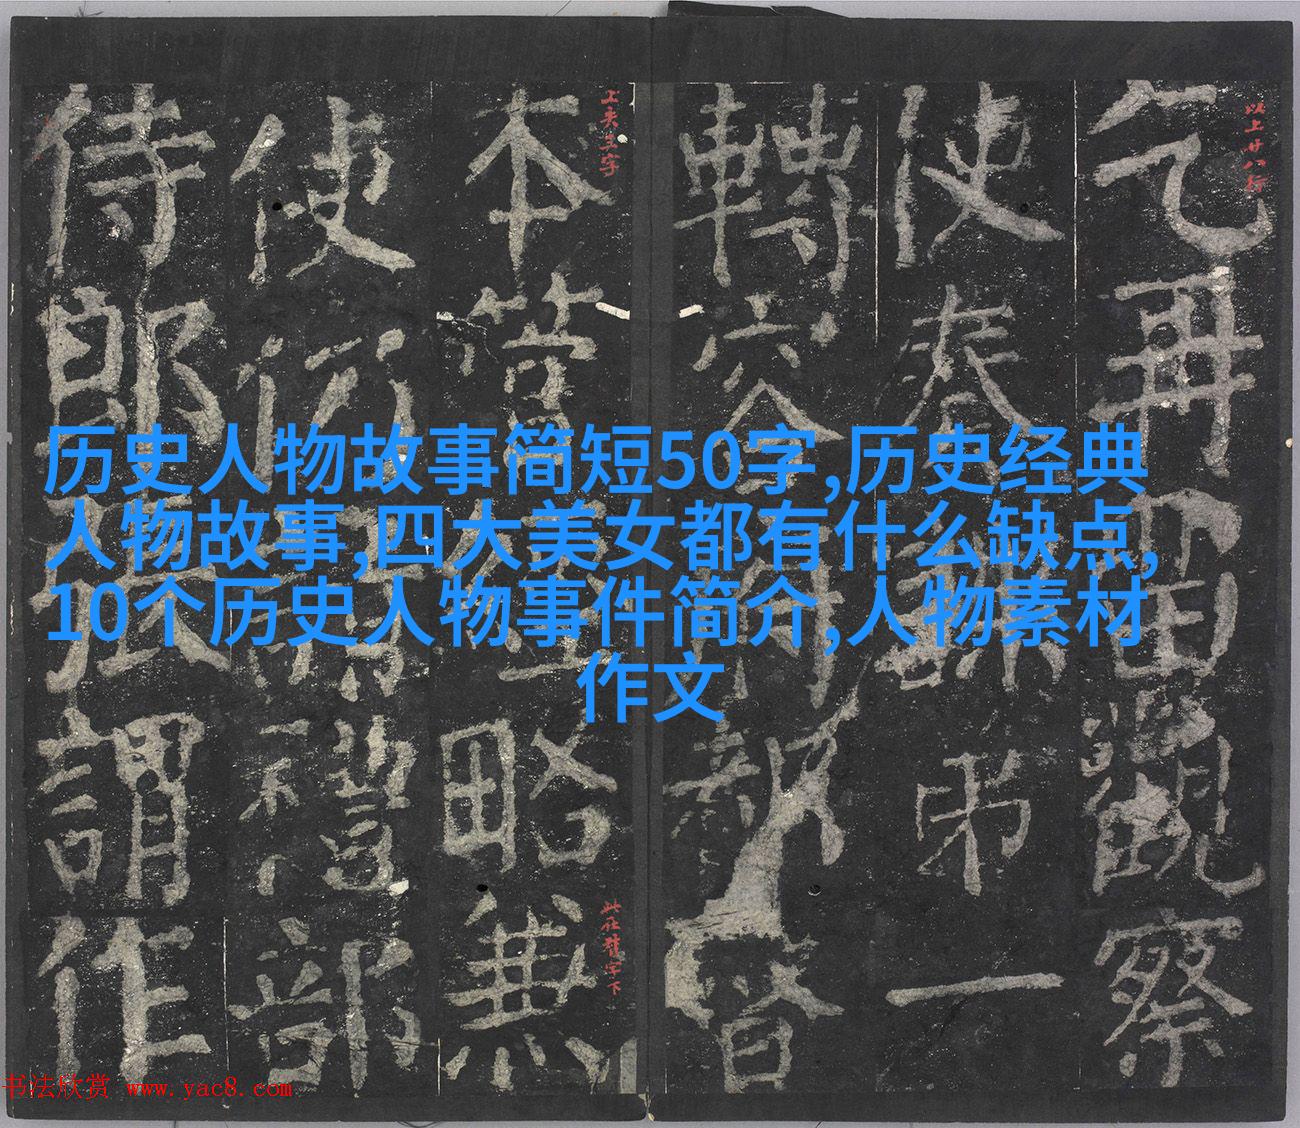 乞再留觀察
使奏課第一
轉六合
督
本營
略無
使仍
禮部
侍郎
張謂作
以上廿八行
上夹三字
此在替字下
历史人物故事简短50字,历史经典
人物故事,四大美女都有什么缺点,
10个历史人物事件简介,人物素材
作文
书法欣赏 www.yac8.com